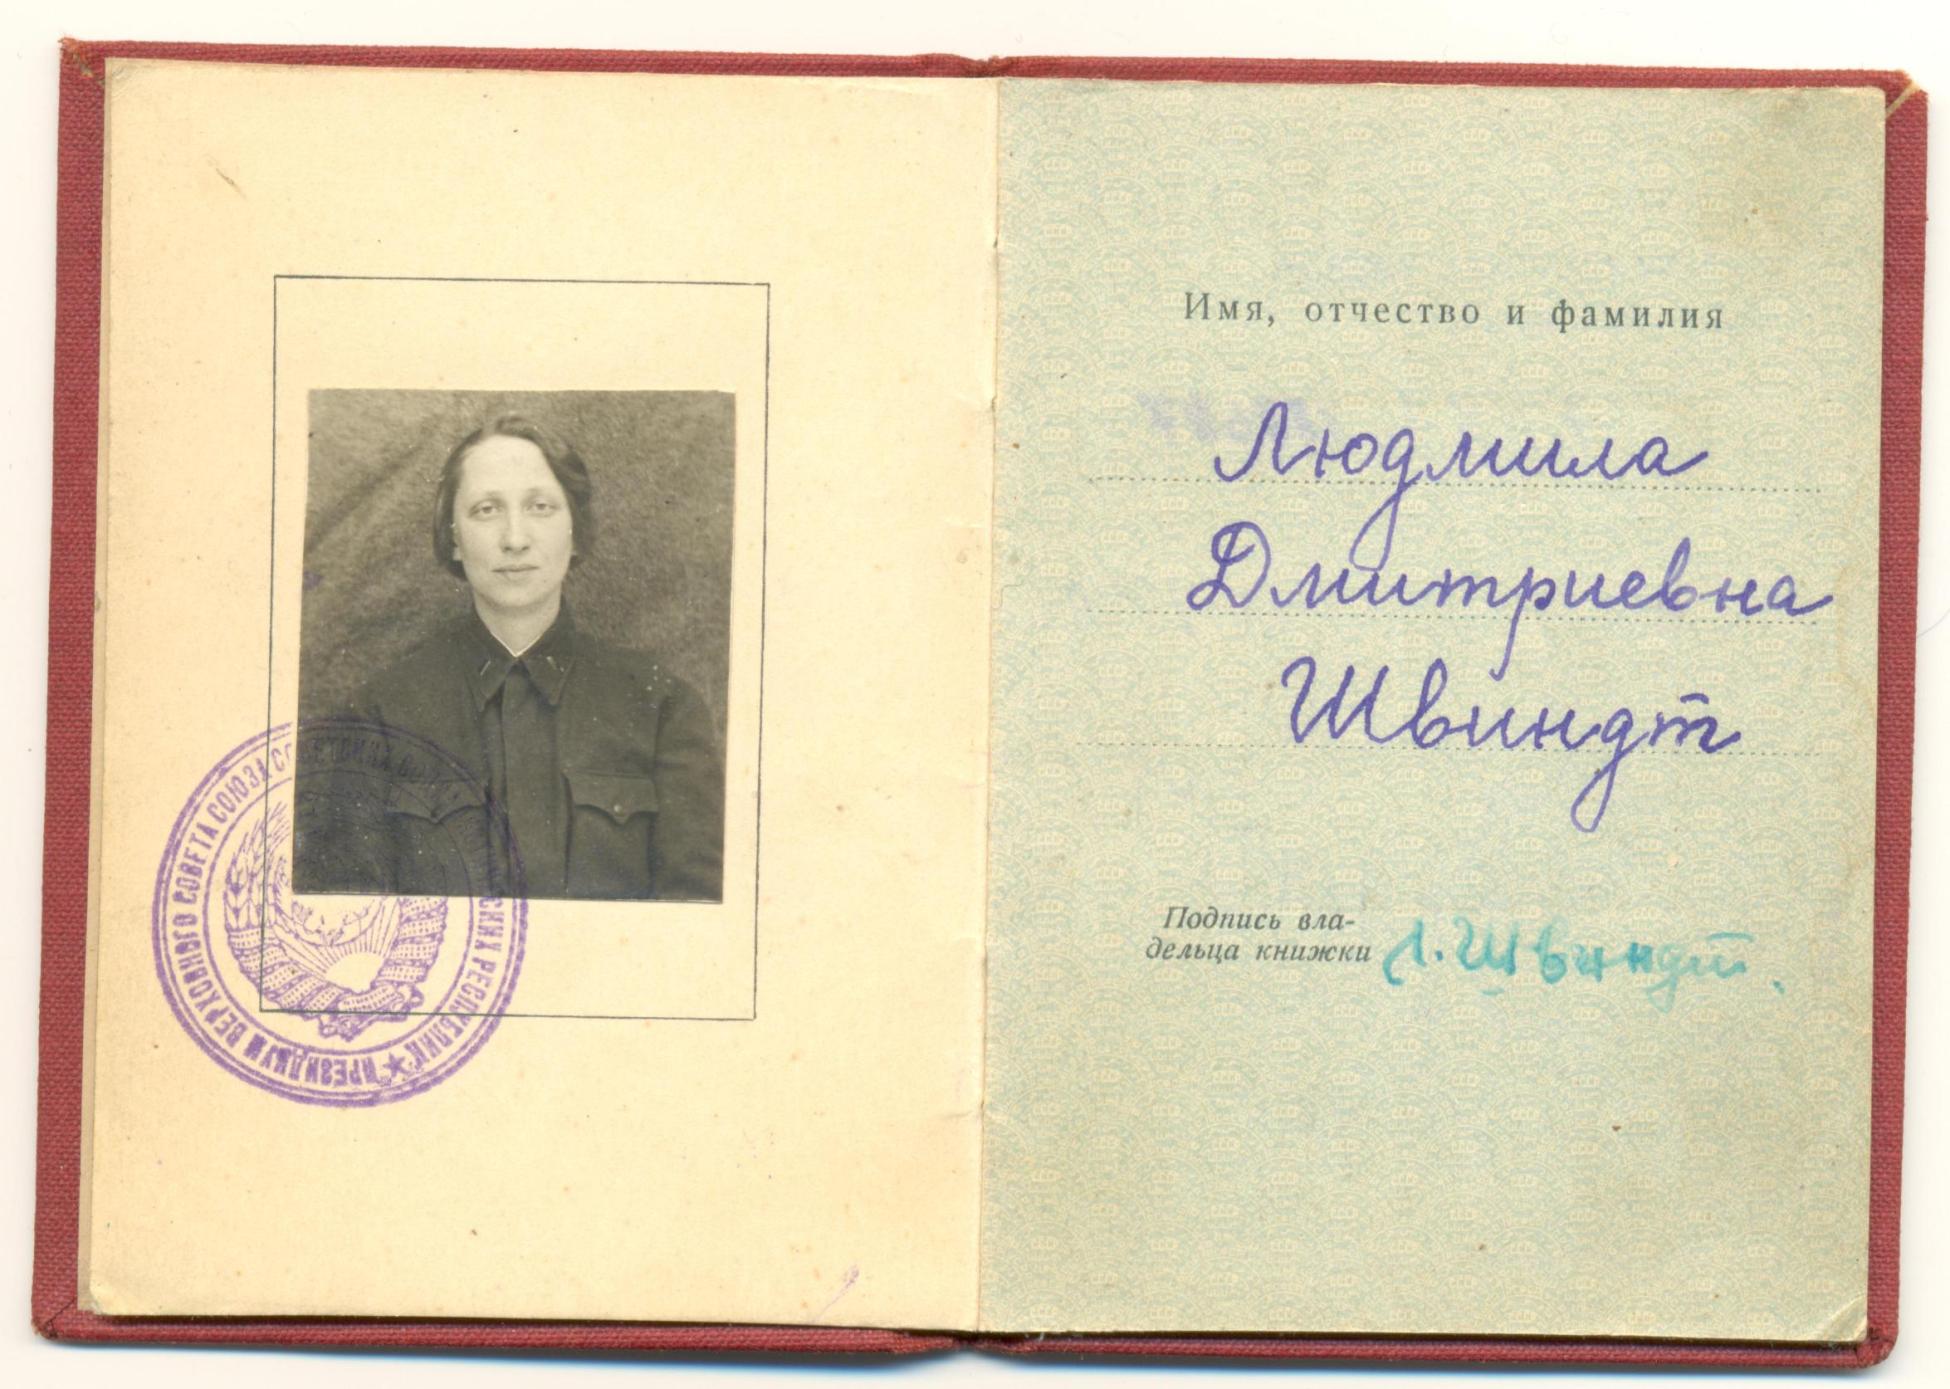 ПРЕЗИДИУМ ВЕРХОВНОГО СОВЕТА СОЮЗА СОВЕТСКИХ СОЦИАЛИСТИЧЕСКИХ РЕСПУБЛИК
Имя, отчество и фамилия
Людмила
Дмитриевна
Швиндт
Подпись вла-
дельца книжки Л. Швиндт.